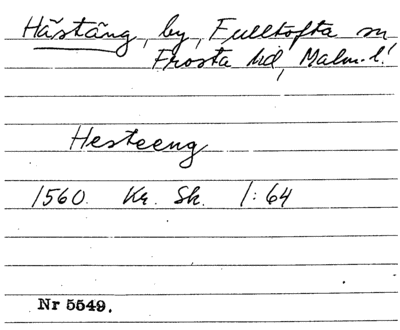 Hästäng, by, Fulltofta sn
Frosta hd, Malm. l.
Hesteeng
1560. Kr. Sk. 1:64
Nr 5549.